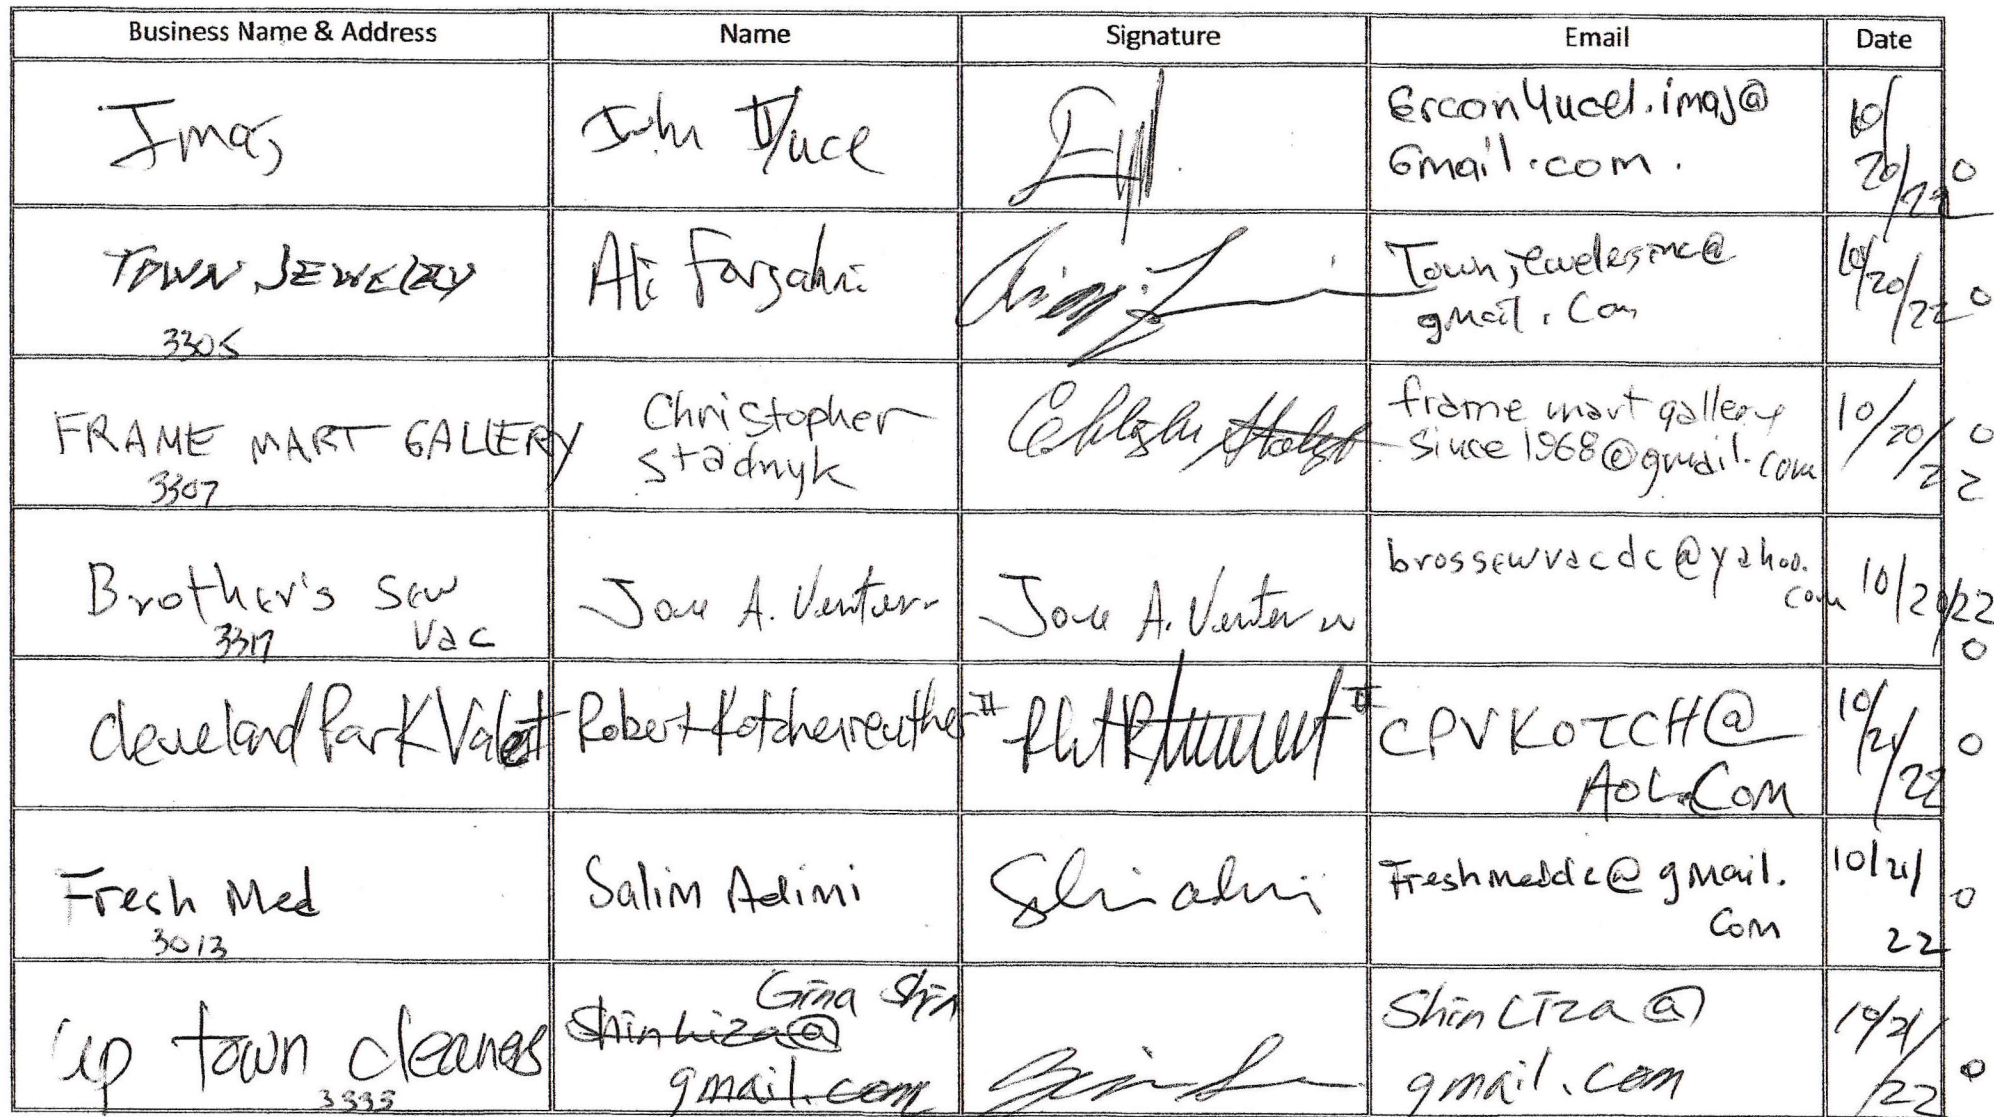 Business Name & Address Name Signature Email Date
Imaj
Yuce
ErcanYucel.imaj@
Gmail.com.
10/
20/22
0
TOWN JEWELRY
3305
Ali
gmail.com
10/20/22
0
FRAME MART GALLERY
3307
Christopher
Stadnyk
frame mart gallery
since 1968@gmail.com
10/20/
22
0
Brother's Sew
Vac
3317
Jose A. Ventura
Jose A. Ventura
brossewvacdc@yahoo.
com
10/20/22
0
Cleveland Park Valet
Robert Kotchenreuther II
II
CPVKOTCH@
AOL.Com
10/21/22
0
Fresh Med
3013
Salim Adimi
Freshmeddc@gmail.
com
10/21/
22
0
up town cleaners
3333
Gina Shin
ShinLiza@
gmail.com
ShinLiza@
gmail.com
10/21/
22
0